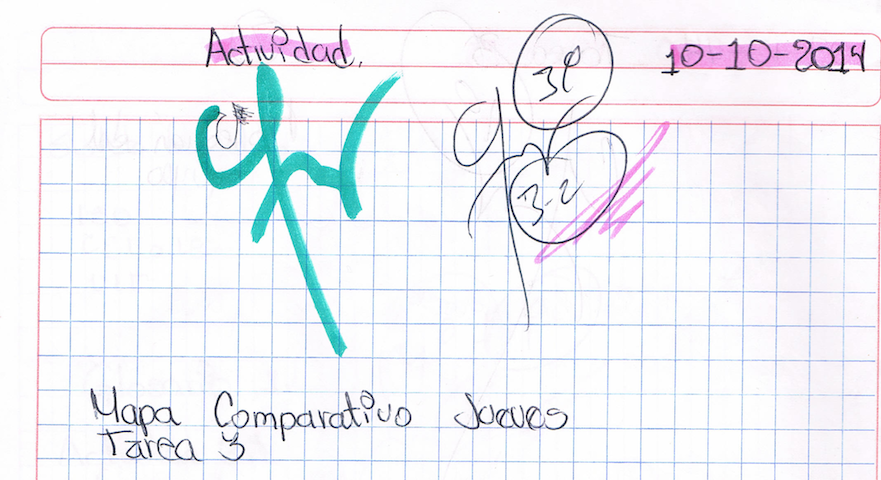 Actividad. 10-10-2014
3-2
Mapa Comparativo Jueves
Tarea 3